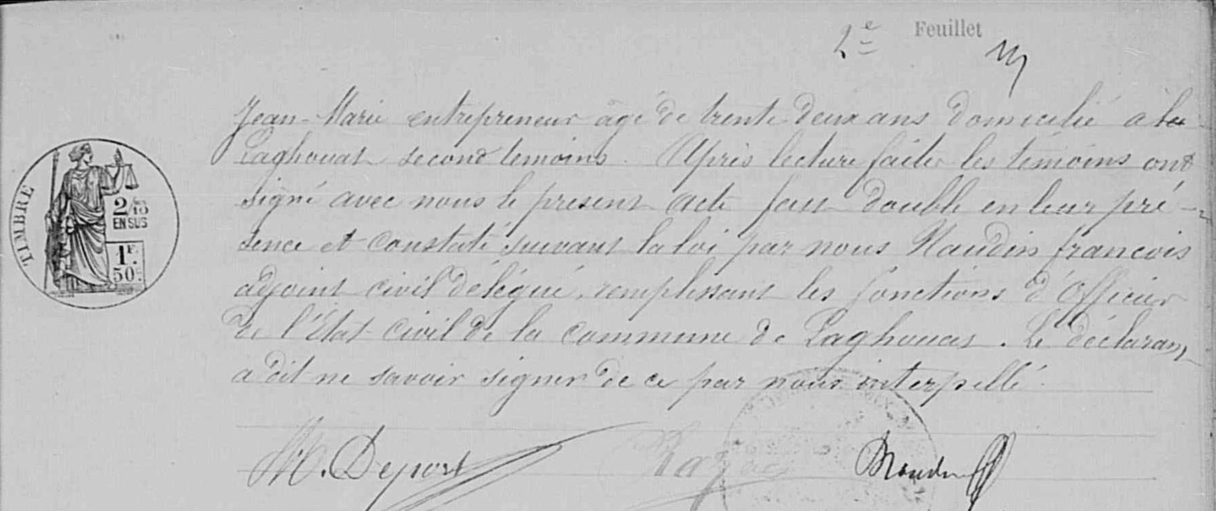 2e Feuillet
Jean-Marie entrepreneur agé de trente deux ans domicilié à
Laghouat second temoins. Après lecture faite les temoins ont
signé avec nous le present acte fait double en leur pré-
sence et constaté suivant la loi par nous Naudin francois
adjoint civil délégué, remplissant les fonctions d'Officier
de l'État civil de la commune de Laghouat. Le déclarant
a dit ne savoir signer de ce par nous interpellé.
M. Deport Naudin
TIMBRE
2/10
EN SUS
1F.
50c.